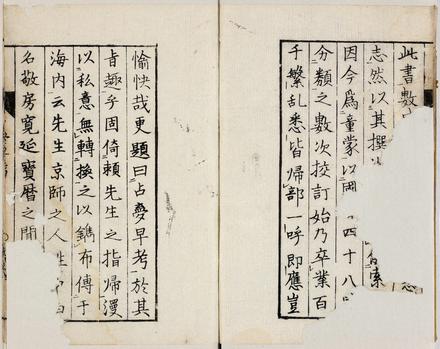 此書數
志然以其撰
因今爲童蒙以 四十八
分類之數次挍訂始乃卒業百
千繁乱悉皆帰部一呼即應豈
愉快哉更題曰占夢早考於其
旨趣乎固倚頼先生之指帰漫
以私意無轉換之以鐫布傳于
海内云先生京師之人
名敬房寛延寳暦之間